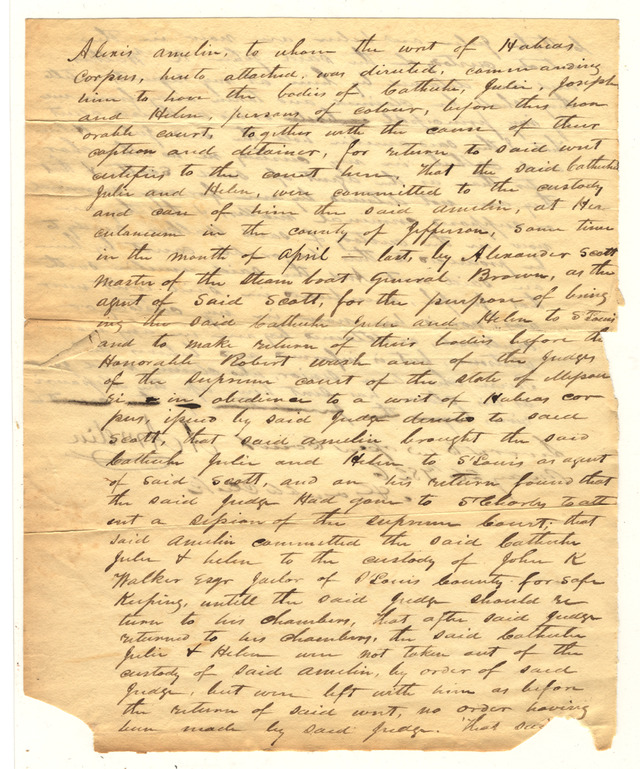 Alexis Amelin, to whom the writ of Habeas
Corpus, hereto attached, was directed, commanding
him to have the bodies of Catheche, Julie, Joseph
and Helen, persons of colour, before this hon
orable court, together with the cause of their
caption and detainer, for return to said writ
certifies to the court here, That the said Catheche
Julie and Helen, were committed to the custody
and care of him the said Amelin, at Her
culaneum in the county of Jefferson, some time
in the month of April — last, by Alexander Scott
Master of the Steam boat General Brown, as the
agent of Said Scott, for the purpose of bring
ing the said Catheche Julie and Helen to St Louis
and to make return of their bodies before the
Honorable Robert Wash one of the Judges
of the Supreme court of the State of Missou
ri in obedience to a writ of Habeas cor
pus, issued by said Judge directed to said
Scott, that said Amelin brought the said
Catheche Julie and Helen to St Louis as agent
of said Scott, and on his return found that
the said Judge Had gone to St Charles to att
end a session of the Supreme Court; that
said Amelin committed the said Catheche
Julie & Helen to the custody of John K
Walker Esqr Jailor of St Louis County for safe
Keeping, untill the said Judge should re
turn to his chambers, that after said Judge
returned to his chambers, the said Catheche
Julie & Helen were not taken out of the
custody of said Amelin, by order of said
Judge, but were left with him as before
the return of said writ, no order having
been made by said Judge. That said